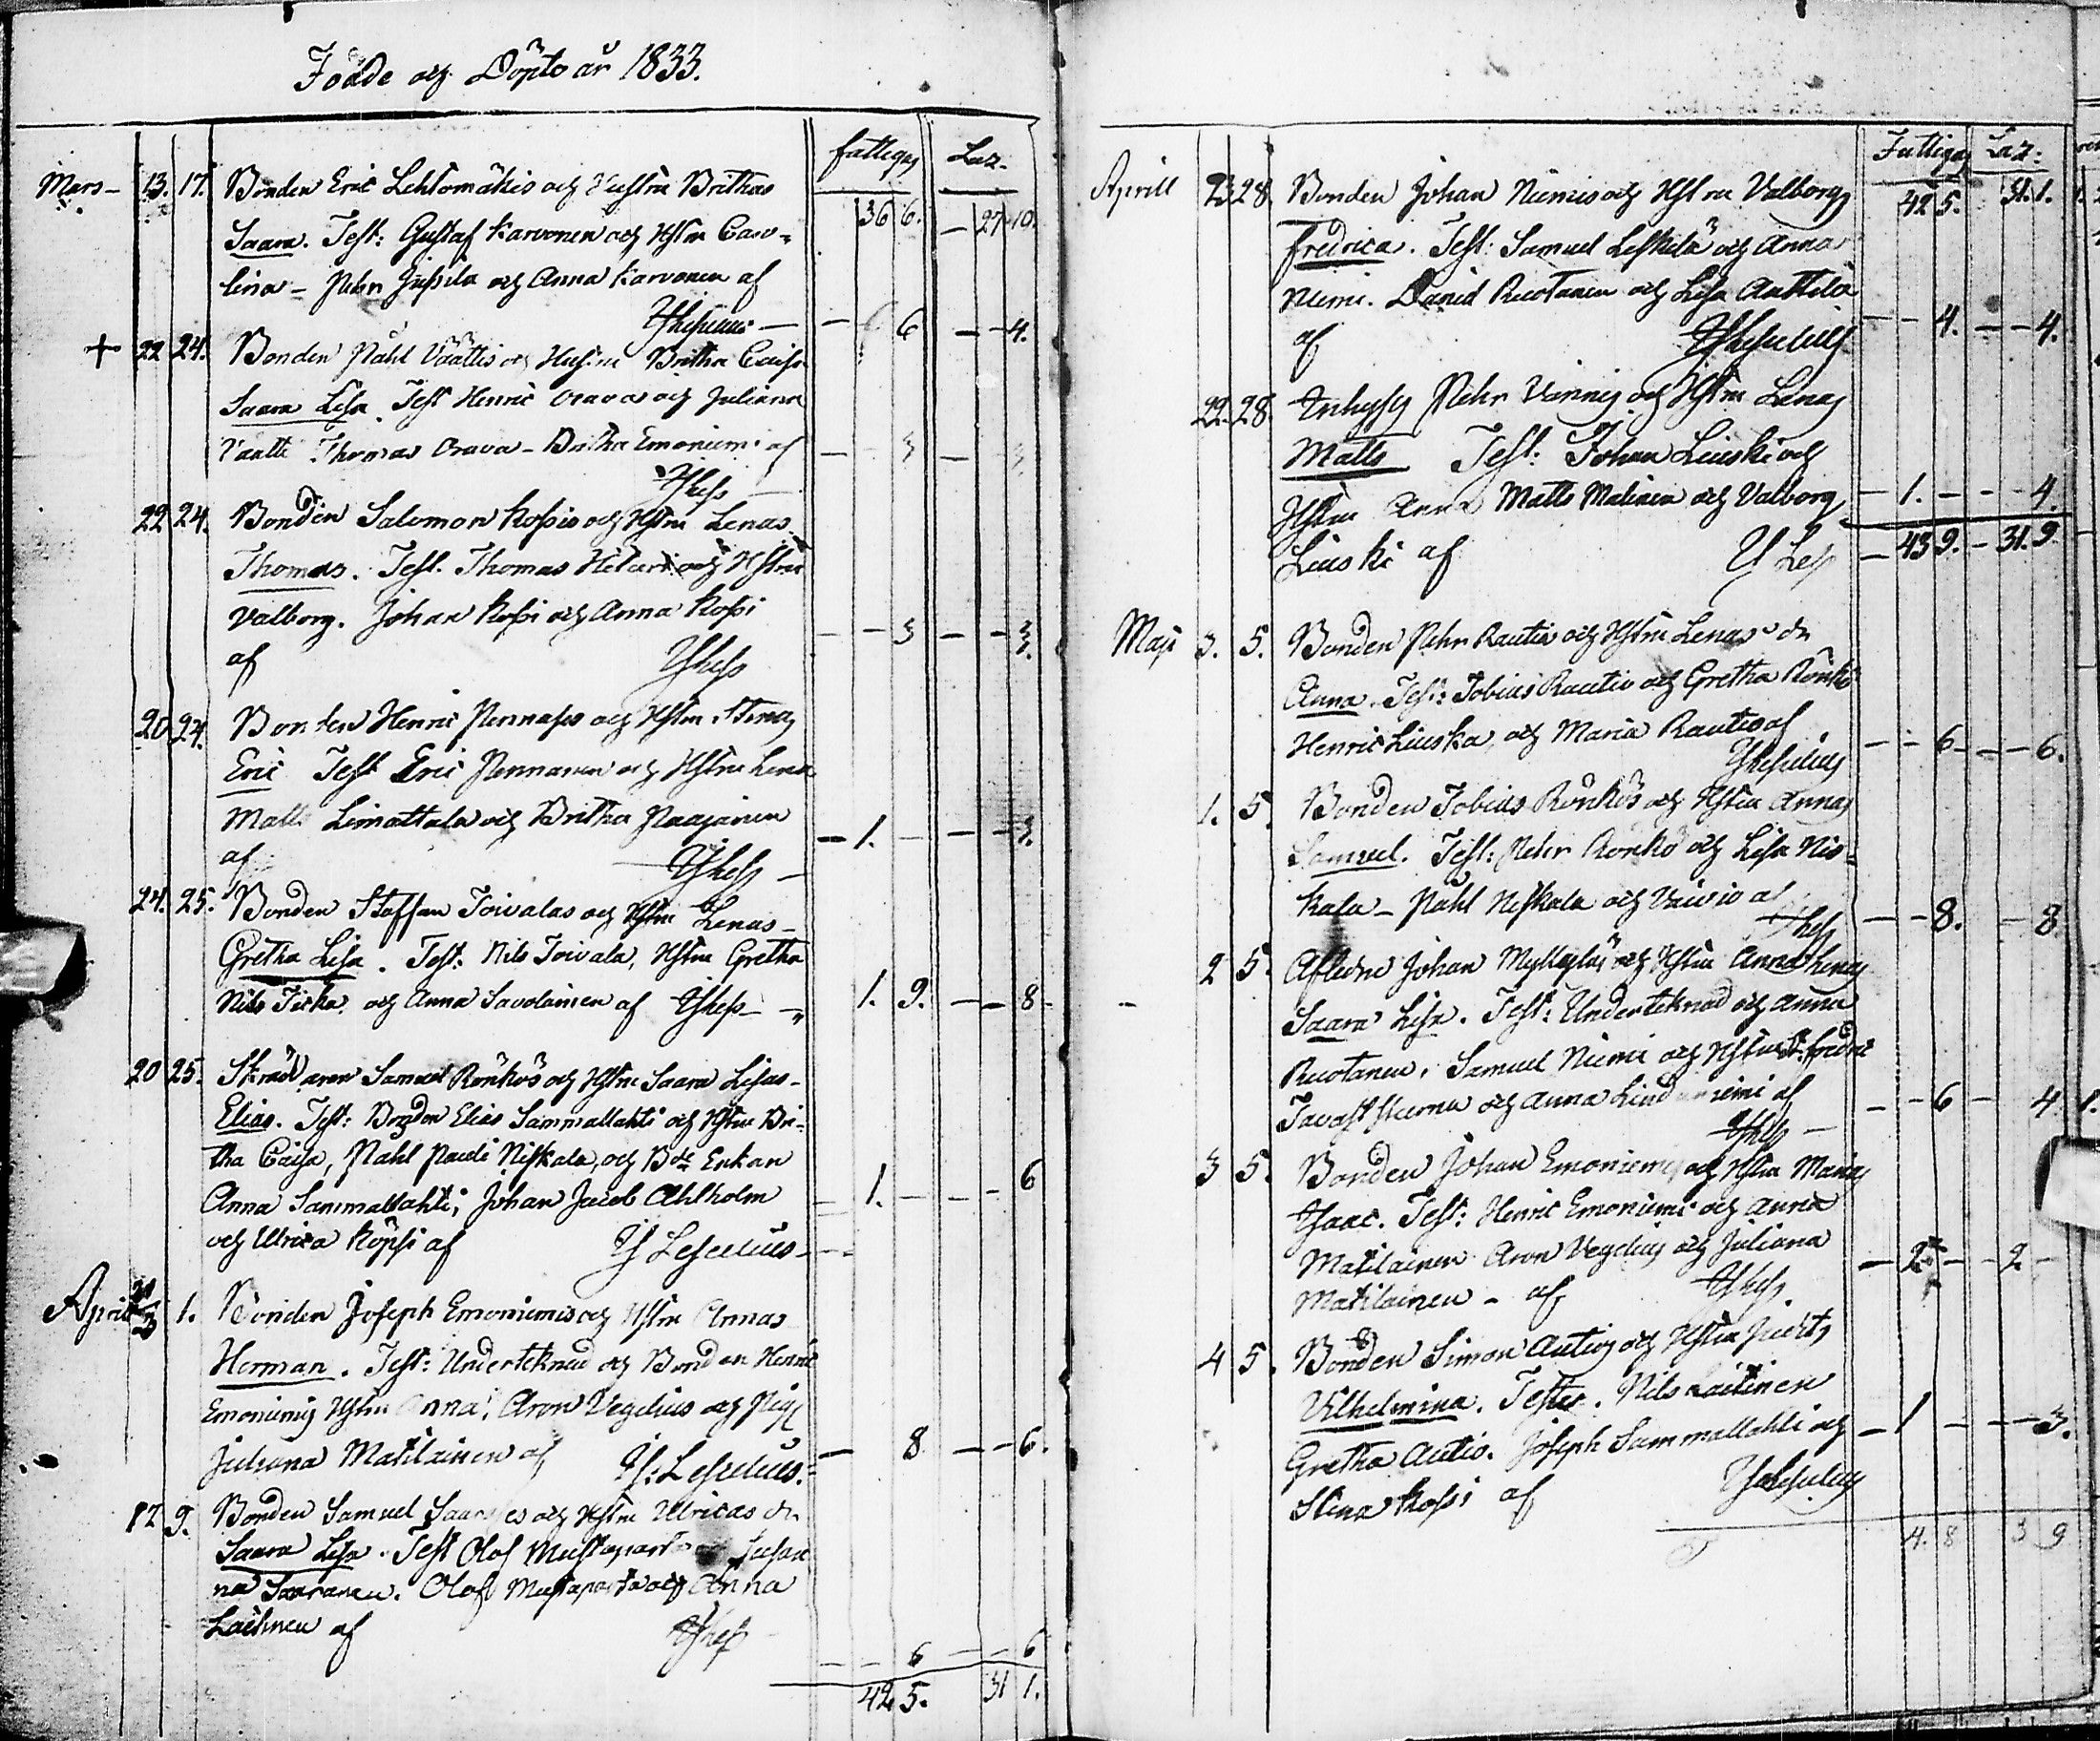 Födde och Döpte år 1833.
fattiga Laz.
Mars 13. 17. Bonden Eric Lehtomäkis och Hustru Brithas
36 6. 27 10.
Saara. Test: Gustaf Karvonen och Hstru Caro-
lina – Pehr Jussila och Anna Karvonen af
6 4.
+ 22 24. Bonden Påhl Väättis och Hustru Britha Caisas
Saara Lisa. Test Henric Orava och Juliana
Väätti Thomas Orava – Britha Emoniemi af
3 3
22 24. Bonden Salomon Kossis och Hstru Lenas
Thomas. Test. Thomas och Hstru
Valborg. Johan Kossi och Anna Kossi
3 3.
af
20 24. Bonden Henric och Hstru Stinas
Eric Test Eric Pennanen och Hstru Lena
Matts Limattala och Britha Paajanen
1. 3.
af
24. 25. Bonden Staffan Toivalas och Hstru Lenas
Gretha Lisa. Test: Nils Toivala, Hstru Gretha
Nils och Anna Savolainen af
1. 9. 8
20 25. Skräddaren Samuel Rönkös och Hstru Saara Lisas
Elias. Test: Bonden Elias Sammallahti och Hstru Bri-
tha Caisa, Påhl Pauli Niskala, och Bde Enkan
Anna Sammallahti, Johan Jacob Ahlholm
1. 6
och Ulrica af
April 1. Bonden Joseph Emoniemis och Hstru Annas
Herman. Test: Underteknad och Bonden Henric
Emoniemis Hstru Anna, Aron Vegelius och Pig.
Juliana Matilainen af
8 6.
12 9. Bonden Samuel och Hstru Ulricas dr
Saara Lisa. Test Olof Mustaparta Susan
na Saaranen. Olof Mustaparta och Anna
Laitinen af
6 6
42 5. 31 1.
Fattiga Laz:
April 23 28. Bonden Johan Niemis och Hstru Valborgs
42 5. 31. 1.
Fredrica. Test: Samuel Leskelä och Anna
Niemi. David Ruotanen och Lisa Anttila
4. 4.
af
22. 28 Inhyses Pehr och Hstru Lenas
Matts Test: Johan Liuski och
Hstru Anna Matts Malinen och Valborg
1. 4.
Liuski af
43 9. 31. 9.
Maji 3. 5. Bonden Pehr Rautios och Hstru Lenas dr
Anna. Test: Tobias Rautio och Gretha Rönkö
Henric Liuska, och Maria Rautio af
6 6.
1. 5. Bonden Tobias Rönkös och Hstru Annas
Samuel. Test: Pehr Rönkö och Lisa Nis-
kala – Påhl Niskala och af
8. 8
2 5. Afledne Johan Myllyläs och Hstru Anna Lenas
Saara Lisa. Test: Underteknad och Anna
Ruotanen, Samuel Niemi och Hstru Fredric
Tavaststierna och Anna af
6 4
3 5. Bonden Johan Emoniemis och Hstru Marias
Isaac. Test: Henric Emoniemi och Anna
Matilainen Aron Vegelius och Juliana
2 2
Matilainen – af
4 5. Bonden Simon Autios och Hstru
Vilhelmina. Testes. Nils Laitinen
Gretha Autio. Joseph Sammallahti och
1 3.
Stina Kossi af
4. 8 3 9